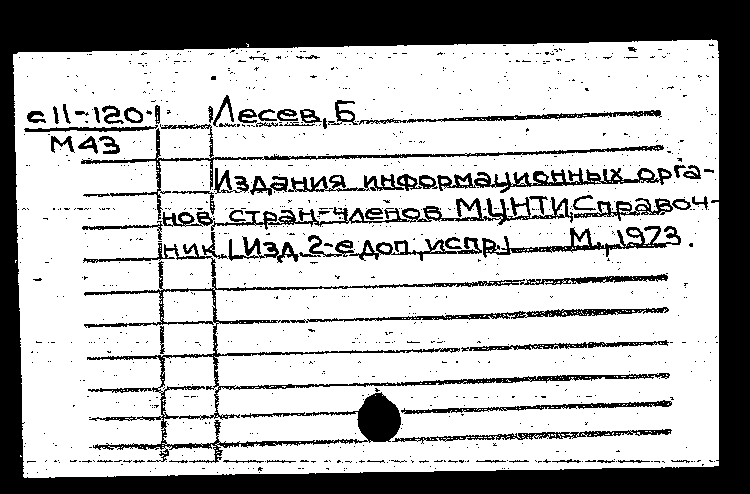 с11-120 Лесев, Б
М43
Издания информационных орга-
нов стран-членов МЦНТИ. Справоч-
ник [Изд. 2-е доп., испр.] М., 1973.